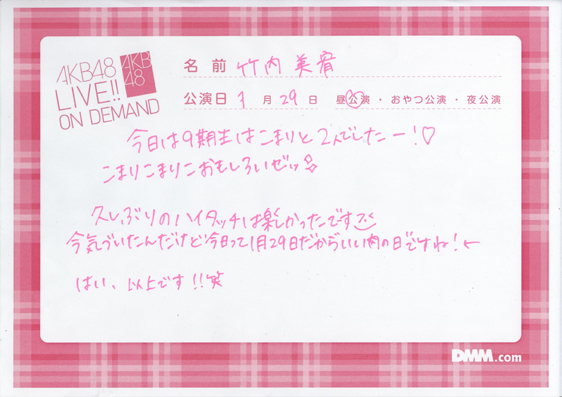 AKB48
LIVE!!
ON DEMAND
AKB
48
名前 竹内 美宥
公演日 1月29日 昼公演・おやつ公演・夜公演
今日は9期生はこまりと2人でしたー!♡
こまりこまりこおもしろいぜッ
久しぶりのハイタッチは楽しかったです
今気づいたんだけど今日って1月29日だからいい肉の日ですね!←
はい、以上です!!笑
DMM.com